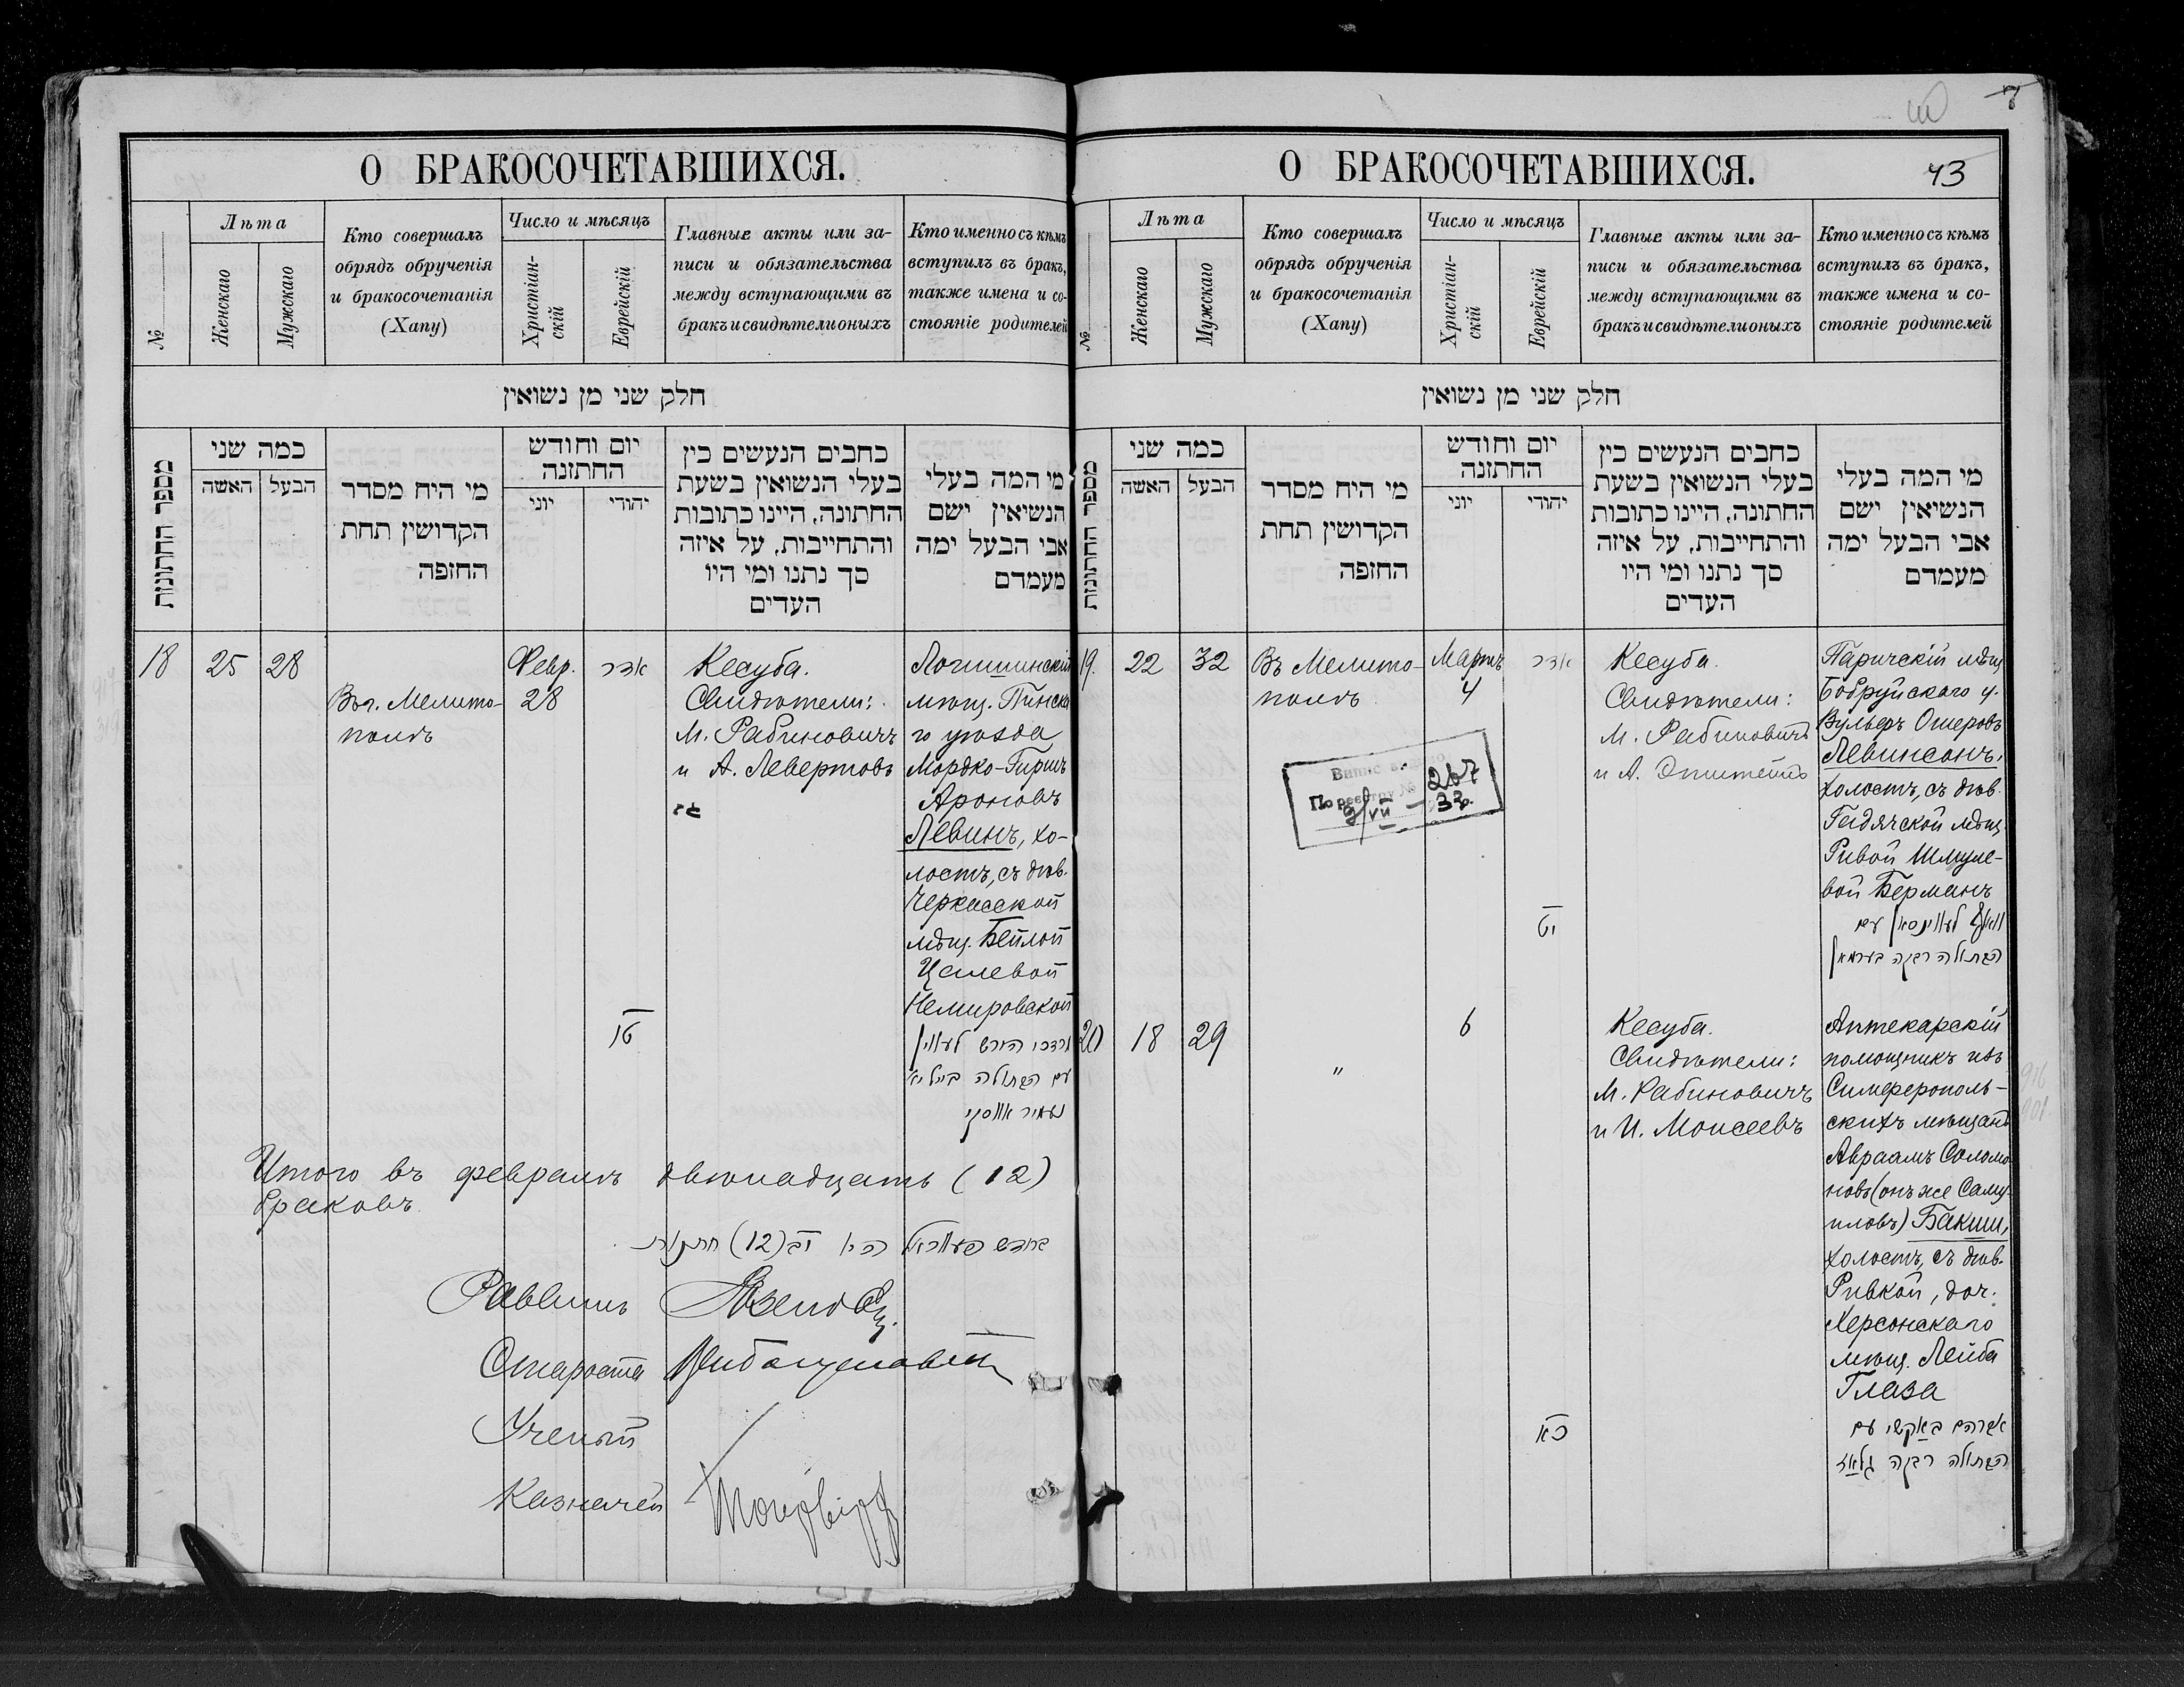 О БРАКОСОЧЕТАВШИХСЯ.
№
Лѣта
Женскаго
Мужскаго
Кто совершалъ
обрядъ обрученія
и бракосочетанія
(Хапу)
Число и мѣсяцъ
Христіан-
скій
Еврейскій
Главные акты или за-
писи и обязательства
между вступающими въ
бракъ и свидѣтели оныхъ
Кто именно съ кѣмъ
вступилъ въ бракъ,
также имена и со-
стояніе родителей
חלק שני מן נשואין
מספר החתונות
כמה שני
האשה
הבעל
מי היח מסדר
הקדושין תחת
החופה
יום וחודש
החתונה
יוני
יהודי
כחבים הנעשים כין
בעלי הנשואין בשעת
החתונה, היינו כתובות
והתחייבות, על איזה
סך נתנו ומי היו
העדים
מי המה בעלי
הנשיאין ישם
אבי הבעל ימה
מעמדם
18
25
28
Въ г. Мелито-
полѣ
Февр.
28
אדר
טו
Кесуба.
Свидѣтели:
М. Рабиновичъ
и А. Левертовъ
Логишинскій
мѣщ. Пинска
го уѣзда
Мордко-Гиршъ
Ароновъ
Левинъ, хо-
лостъ, съ дѣв.
Черкасской
мѣщ. Бейлой
Цалевой
Немировской
מרדכי הירש לעווין
עם הבתולה ביילא
נעמיראווסקי
Итого въ февралѣ двѣнадцать (12)
браковъ.
בחודש פעווראל היו יב (12) חתונות
Раввинъ
Староста
Ученый
Казначей
О БРАКОСОЧЕТАВШИХСЯ.
43
№
Лѣта
Женскаго
Мужскаго
Кто совершалъ
обрядъ обрученія
и бракосочетанія
(Хапу)
Число и мѣсяцъ
Христіан-
скій
Еврейскій
Главные акты или за-
писи и обязательства
между вступающими въ
бракъ и свидѣтели оныхъ
Кто именно съ кѣмъ
вступилъ въ бракъ,
также имена и со-
стояніе родителей
חלק שני מן נשואין
מספר החתונות
כמה שני
האשה
הבעל
מי היח מסדר
הקדושין תחת
החופה
יום וחודש
החתונה
יוני
יהודי
כחבים הנעשים כין
בעלי הנשואין בשעת
החתונה, היינו כתובות
והתחייבות, על איזה
סך נתנו ומי היו
העדים
מי המה בעלי
הנשיאין ישם
אבי הבעל ימה
מעמדם
19.
22
32
Въ Мелито-
полѣ
Мартъ
4
אדר
יט
По реестру № 267
9/VII - 33р.
Кесуба.
Свидѣтели:
М. Рабиновичъ
и А. Эпштейнъ
Паричскій мѣщ
Бобруйскаго у.
Вульфъ Ошеровъ
Левинсонъ,
холостъ, съ дѣв.
Гадячской мѣщ.
Ривой Шмуле-
вой Берманъ
וואלף לעווינסאן עם
הבתולה רבקה בערמאן
20
18
29
"
6
כא
Кесуба.
Свидѣтели:
М. Рабиновичъ
и И. Моисеевъ
Аптекарскій
помощникъ изъ
Симферополь-
скихъ мѣщанъ
Авраамъ Соломо
новъ (онъ же Саму
иловъ) Бакши,
холостъ, съ дѣв.
Ривкой, доч.
Херсонскаго
мѣщ. Лейба
Глаза
אברהם באקשי עם
הבתולה רבקה גלאז